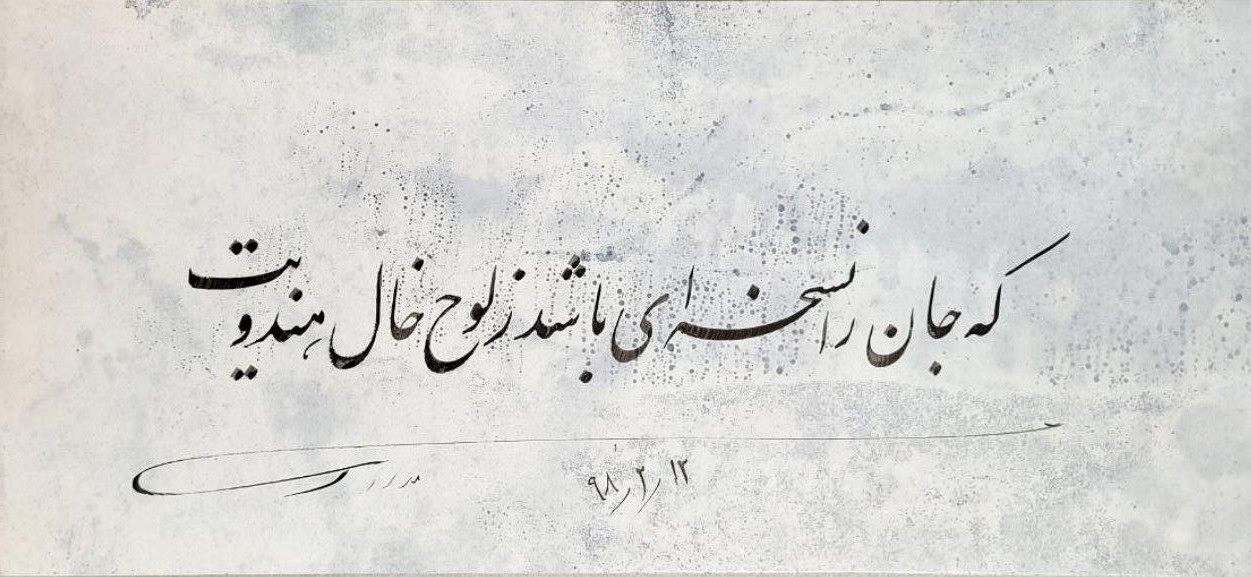 که جان را نسخه‌ای باشد ز لوح خال هندویت
۹۸/۳/۱۳